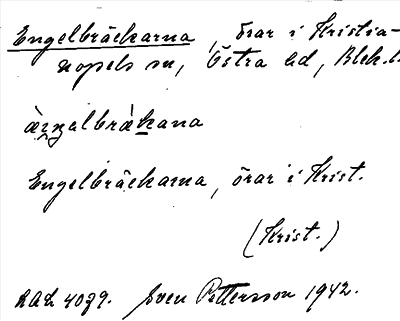 Engelbräckarna, örar i Kristia-
nopels sn, Östra hd, Blek. l.
Engelbräckarna, örar i Krist.
(Krist.)
RAÄ 4079. Sven Pettersson 1942.